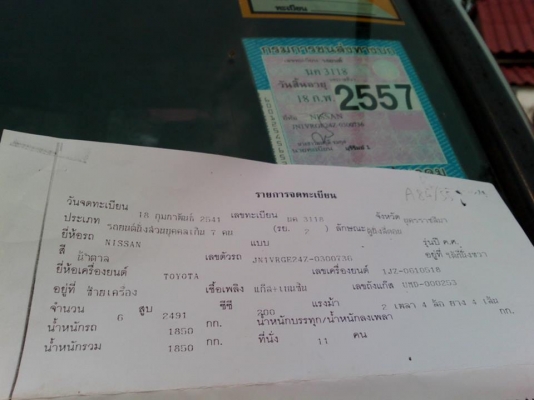 ทะเบียน
กรมการขนส่งทางบก
มค 3118
วันสิ้นอายุ
18 ก.พ. 2557
รายการจดทะเบียน
วันจดทะเบียน 18 กุมภาพันธ์ 2541 เลขทะเบียน มค 3118 จังหวัด
ประเภท รถยนต์นั่งส่วนบุคคลเกิน 7 คน (รย. 2 ) ลักษณะ
ยี่ห้อรถ NISSAN แบบ รุ่นปี ค.ศ.
สี น้ำตาล เลขตัวรถ JN1VRGE24Z-0300736 อยู่ที่
ยี่ห้อเครื่องยนต์ TOYOTA เลขเครื่องยนต์ 1JZ-0610518
อยู่ที่ ซ้ายเครื่อง เชื้อเพลิง แก๊ส+เบนซิน เลขถังแก๊ส
จำนวน 6 สูบ 2491 ซีซี 200 แรงม้า 2 เพลา 4 ล้อ ยาง 4 เส้น
น้ำหนักรถ 1850 กก. น้ำหนักบรรทุก/น้ำหนักลงเพลา กก.
น้ำหนักรวม 1850 กก. ที่นั่ง 11 คน